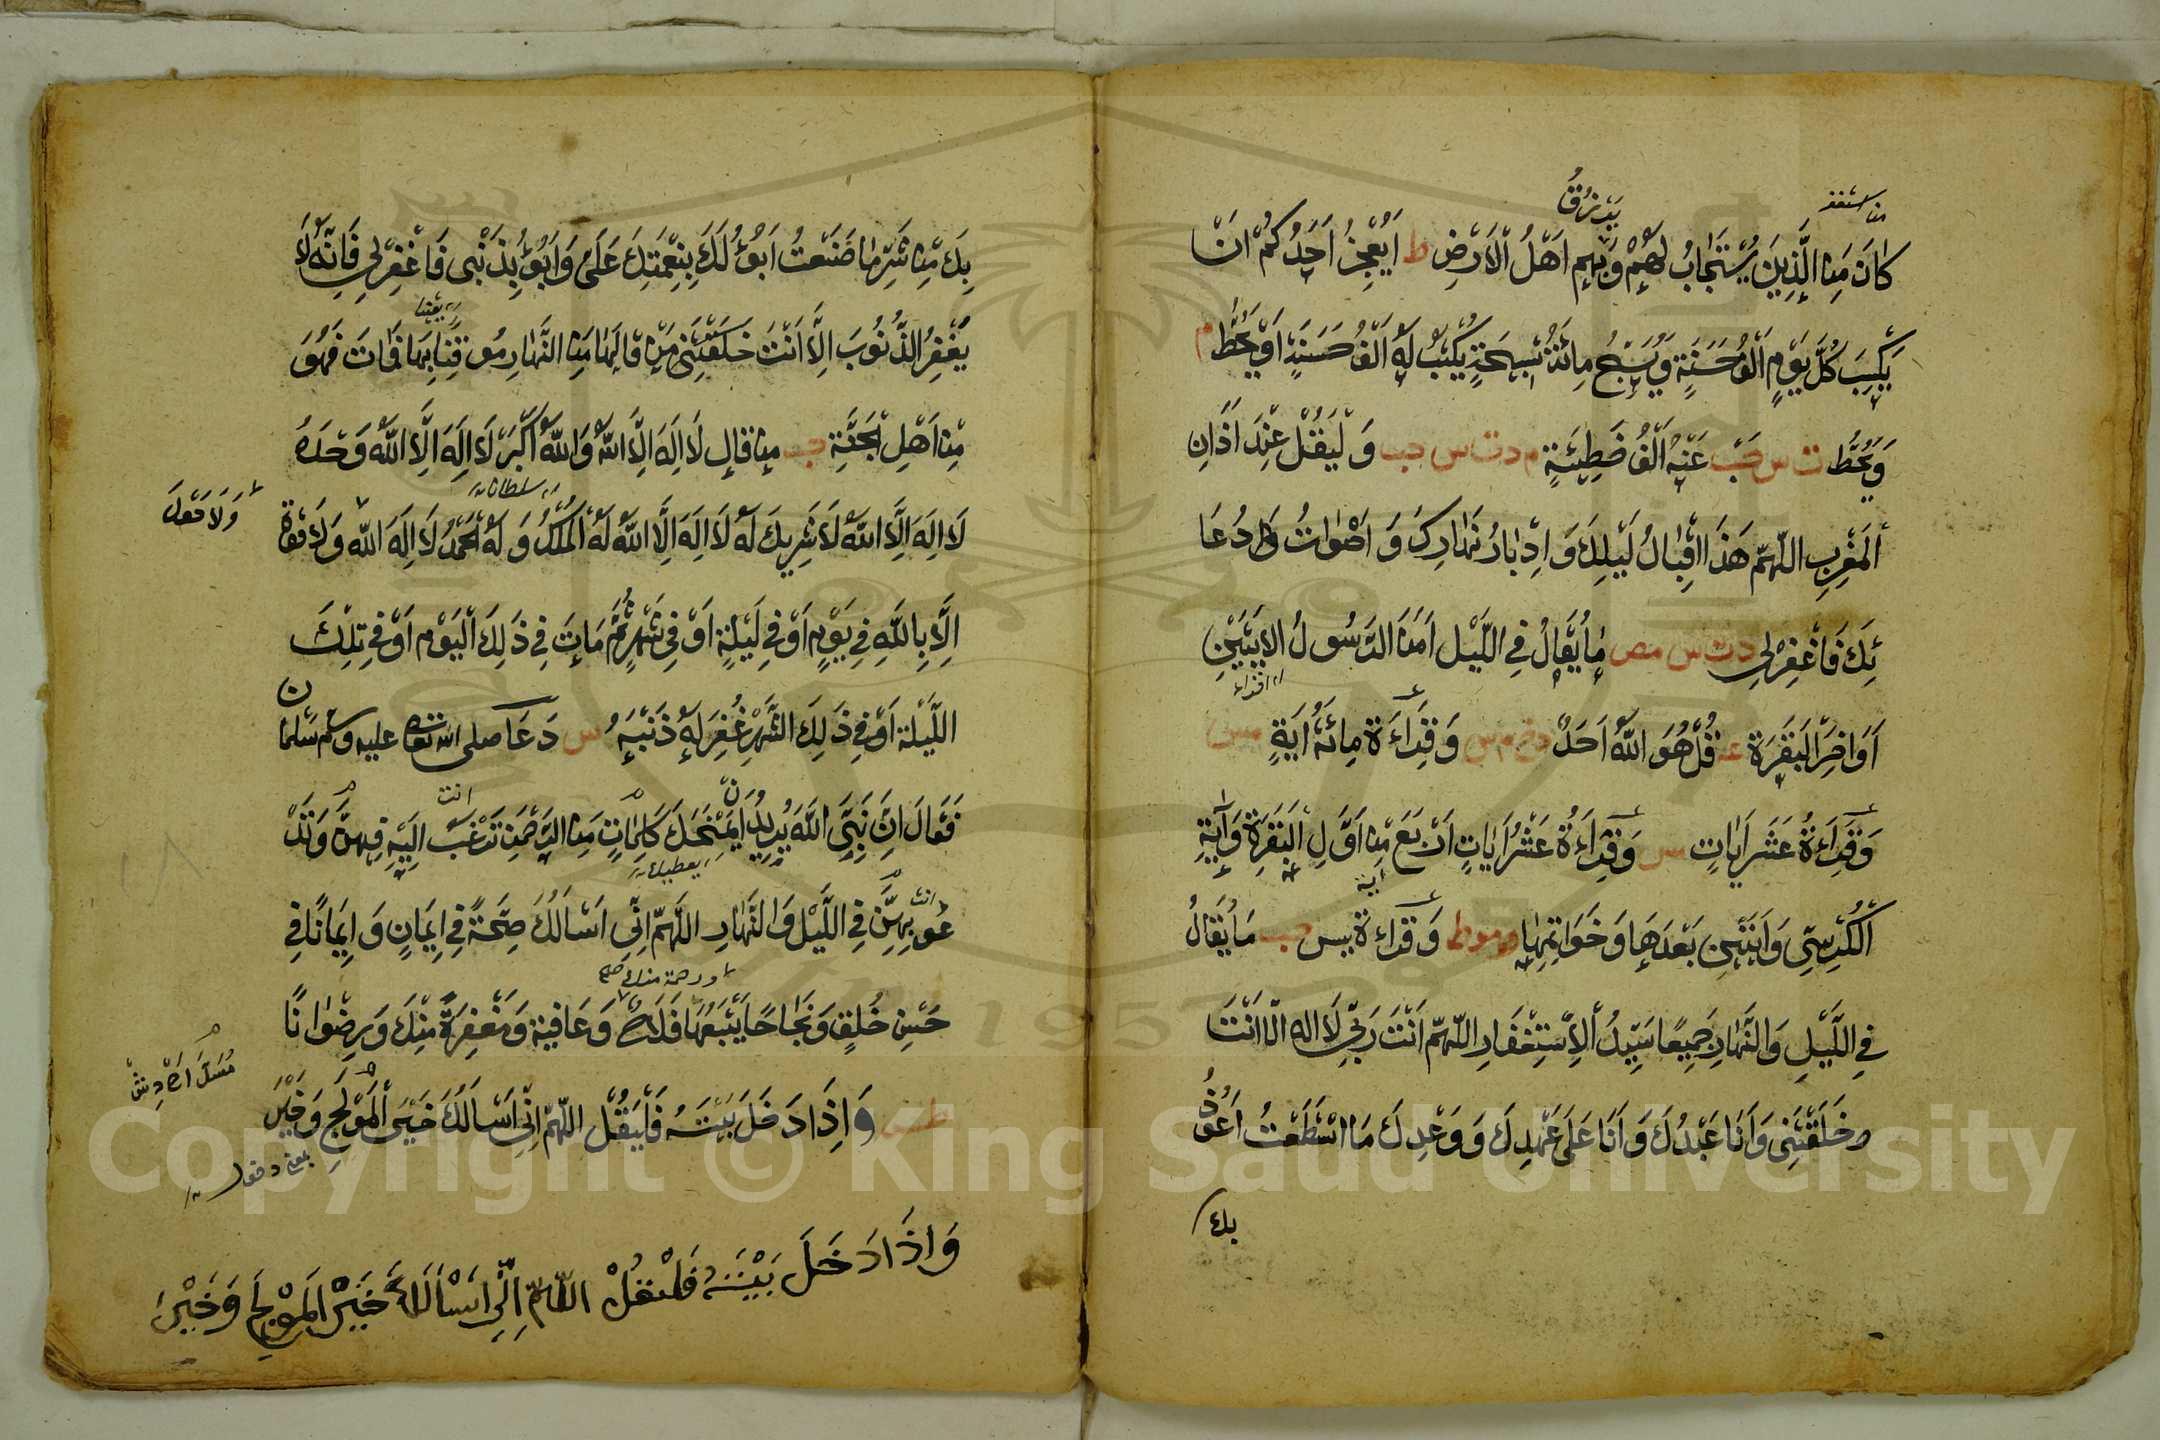 من استغفر
يرزق
كَانَ مِنَ الَّذِينَ يُسْتَجَابُ لَهُمْ وَبِهِم اَهْلُ الْاَرْضِ ط اَيُعْجِزُ اَحَدُكُمْ اَنْ
يَكْسِبَ كُلَّ يَوْمٍ اَلْفَ حَسَنَةٍ يُسَبِّحُ مِائَةَ تَسبيحَةٍ يُكْتَبُ لَهُ اَلْفُ حَسَنَةٍ اَوْ يُحَطُّ م
وَيُحَطُّ ت س حب عَنْهُ اَلْفُ خَطِيئَةٍ م د ت س حب وَلْيَقُلْ عِنْدَ اَذَانِ
الْمَغْرِبِ اللّهُمَّ هَذَا اِقْبَالُ لَيْلِكَ وَ اِدْبَارُ نَهَارِكَ وَ اَصْوَاتُ دُعَا
ئِكَ فَاغْفِرْلِي د ت س مص مَا يُقَالُ فِي اللَّيْلِ اٰمَنَ الرَّسُولُ الايَتَيْنِ
اَوَاخِرَ الْبَقَرَةِ عه قُلْ هُوَ اللّٰهُ اَحَدٌ خ م س وَقِرَاءَةُ مِائَةِ اٰيَةٍ مس
وَقِرَاءَةُ عَشَرِ اٰيَاتٍ مس وَقِرَاءَةُ عَشْرِ اٰيَاتٍ اَرْبَعَ مِنْ اَوَّلِ الْبَقَرَةِ وَاٰيَةِ
اية
الْكُرْسِيِّ وَاٰيَتَيْنِ بَعْدَهَا وَخَوَاتِمِهَا موط وَقِرَاءَة يس حب مَا يُقَالُ
فِي اللَّيْلِ وَالنَّهَارِ جَمِيعًا سَيِّدُ الْاِسْتِغْفَارِ اللّهُمَّ اَنْتَ رَبِّي لَا اله الا اَنْتَ
خَلَقْتَنِي وَاَنَا عَبْدُكَ وَاَنَا عَلَى عَهْدِكَ وَ وَعْدِكَ مَا اسْتَطَعْتُ اَعُوذُ
بك
بِكَ مِنْ شَرِّ مَا صَنَعْتُ اَبُوْءُ لَكَ بِنِعْمَتِكَ عَلَيَّ وَ اَبُوْءُ بِذَنْبِي فَاغْفِرْلِي فَاِنَّهُ لَا
يَغْفِرُ الذُّنُوبَ اِلَّا اَنْتَ خ مَنْ قَالَهَا مِنَ النَّهَارِ مُوقِنًا بِهَا فَمَاتَ فَهُوَ
يقينا
مِنْ اَهْلِ الْجَنَّةِ خ مَنْ قَالَ لَا اِلَهَ اِلَّا اللّٰهُ وَاللّٰهُ اَكْبَرُ لَا اِلَهَ اِلَّا اللّٰهُ وَحْدَهُ
سلطان
لَا اِلَهَ اِلَّا اللّٰهُ لَا شَرِيكَ لَهُ لَا اِلَهَ اِلَّا اللّٰهُ لَهُ الْمُلْكُ وَ لَهُ الْحَمْدُ لَا اِلَهَ اِلَّا اللّٰه وَلَا قُوَّةَ
وَلَا حَوْلَ
اِلَّا بِاللّٰهِ فِي يَوْمٍ اَوْ فِي لَيْلَةٍ اَوْ فِي شَهْرٍ ثُمَّ مَاتَ فِي ذَلِكَ الْيَوْم اَوْ فِي تِلْكَ
اللَّيْلَةِ اَوْ فِي ذَلِكَ الشَّهْرِ غُفِرَ لَهُ ذَنْبُهُ س دَعَا صلى الله تعالى عليه وسلم سَلْمَانَ
انت
فَقَالَ اِنَّ نَبِيَّ اللّٰهِ يُرِيدُ اَنْ يَمْنَحَكَ كَلِمَاتٍ مِنَ الرَّحْمَنِ تَرْغَبُ اِلَيْهِ فِيهِنَّ وَتَدْ
يعطيك
عُو بِهِنَّ فِي اللَّيْلِ وَالنَّهَارِ اللّهُمَّ اِنِّي اَسْاَلُكَ صِحَّةً فِي اِيمَانٍ وَ اِيمَانًا فِي
ورحمة منك صح
حُسْنِ خُلُقٍ وَنَجَاحًا يَتْبَعُهَا فَلَاحٌ وَعَافِيةً وَمَغْفِرَةً مِنْكَ وَرِضْوَانًا
طس وَاِذَا دَخَلَ بَيْتَهُ فَلْيَقُلْ اللّهُمَّ اِنِّي اَسْاَلُكَ خَيْرَ الْمَوْلَجِ وَخَيْرَ
وَاِذَا دَخَلَ بَيْتَهُ فَلْيَقُلْ اللّٰهُمَّ اِنِّي اَسْاَلُكَ خَيْرَ الْمَوْلَجِ وَخَيْرَ
Copyright © King Saud University
1957